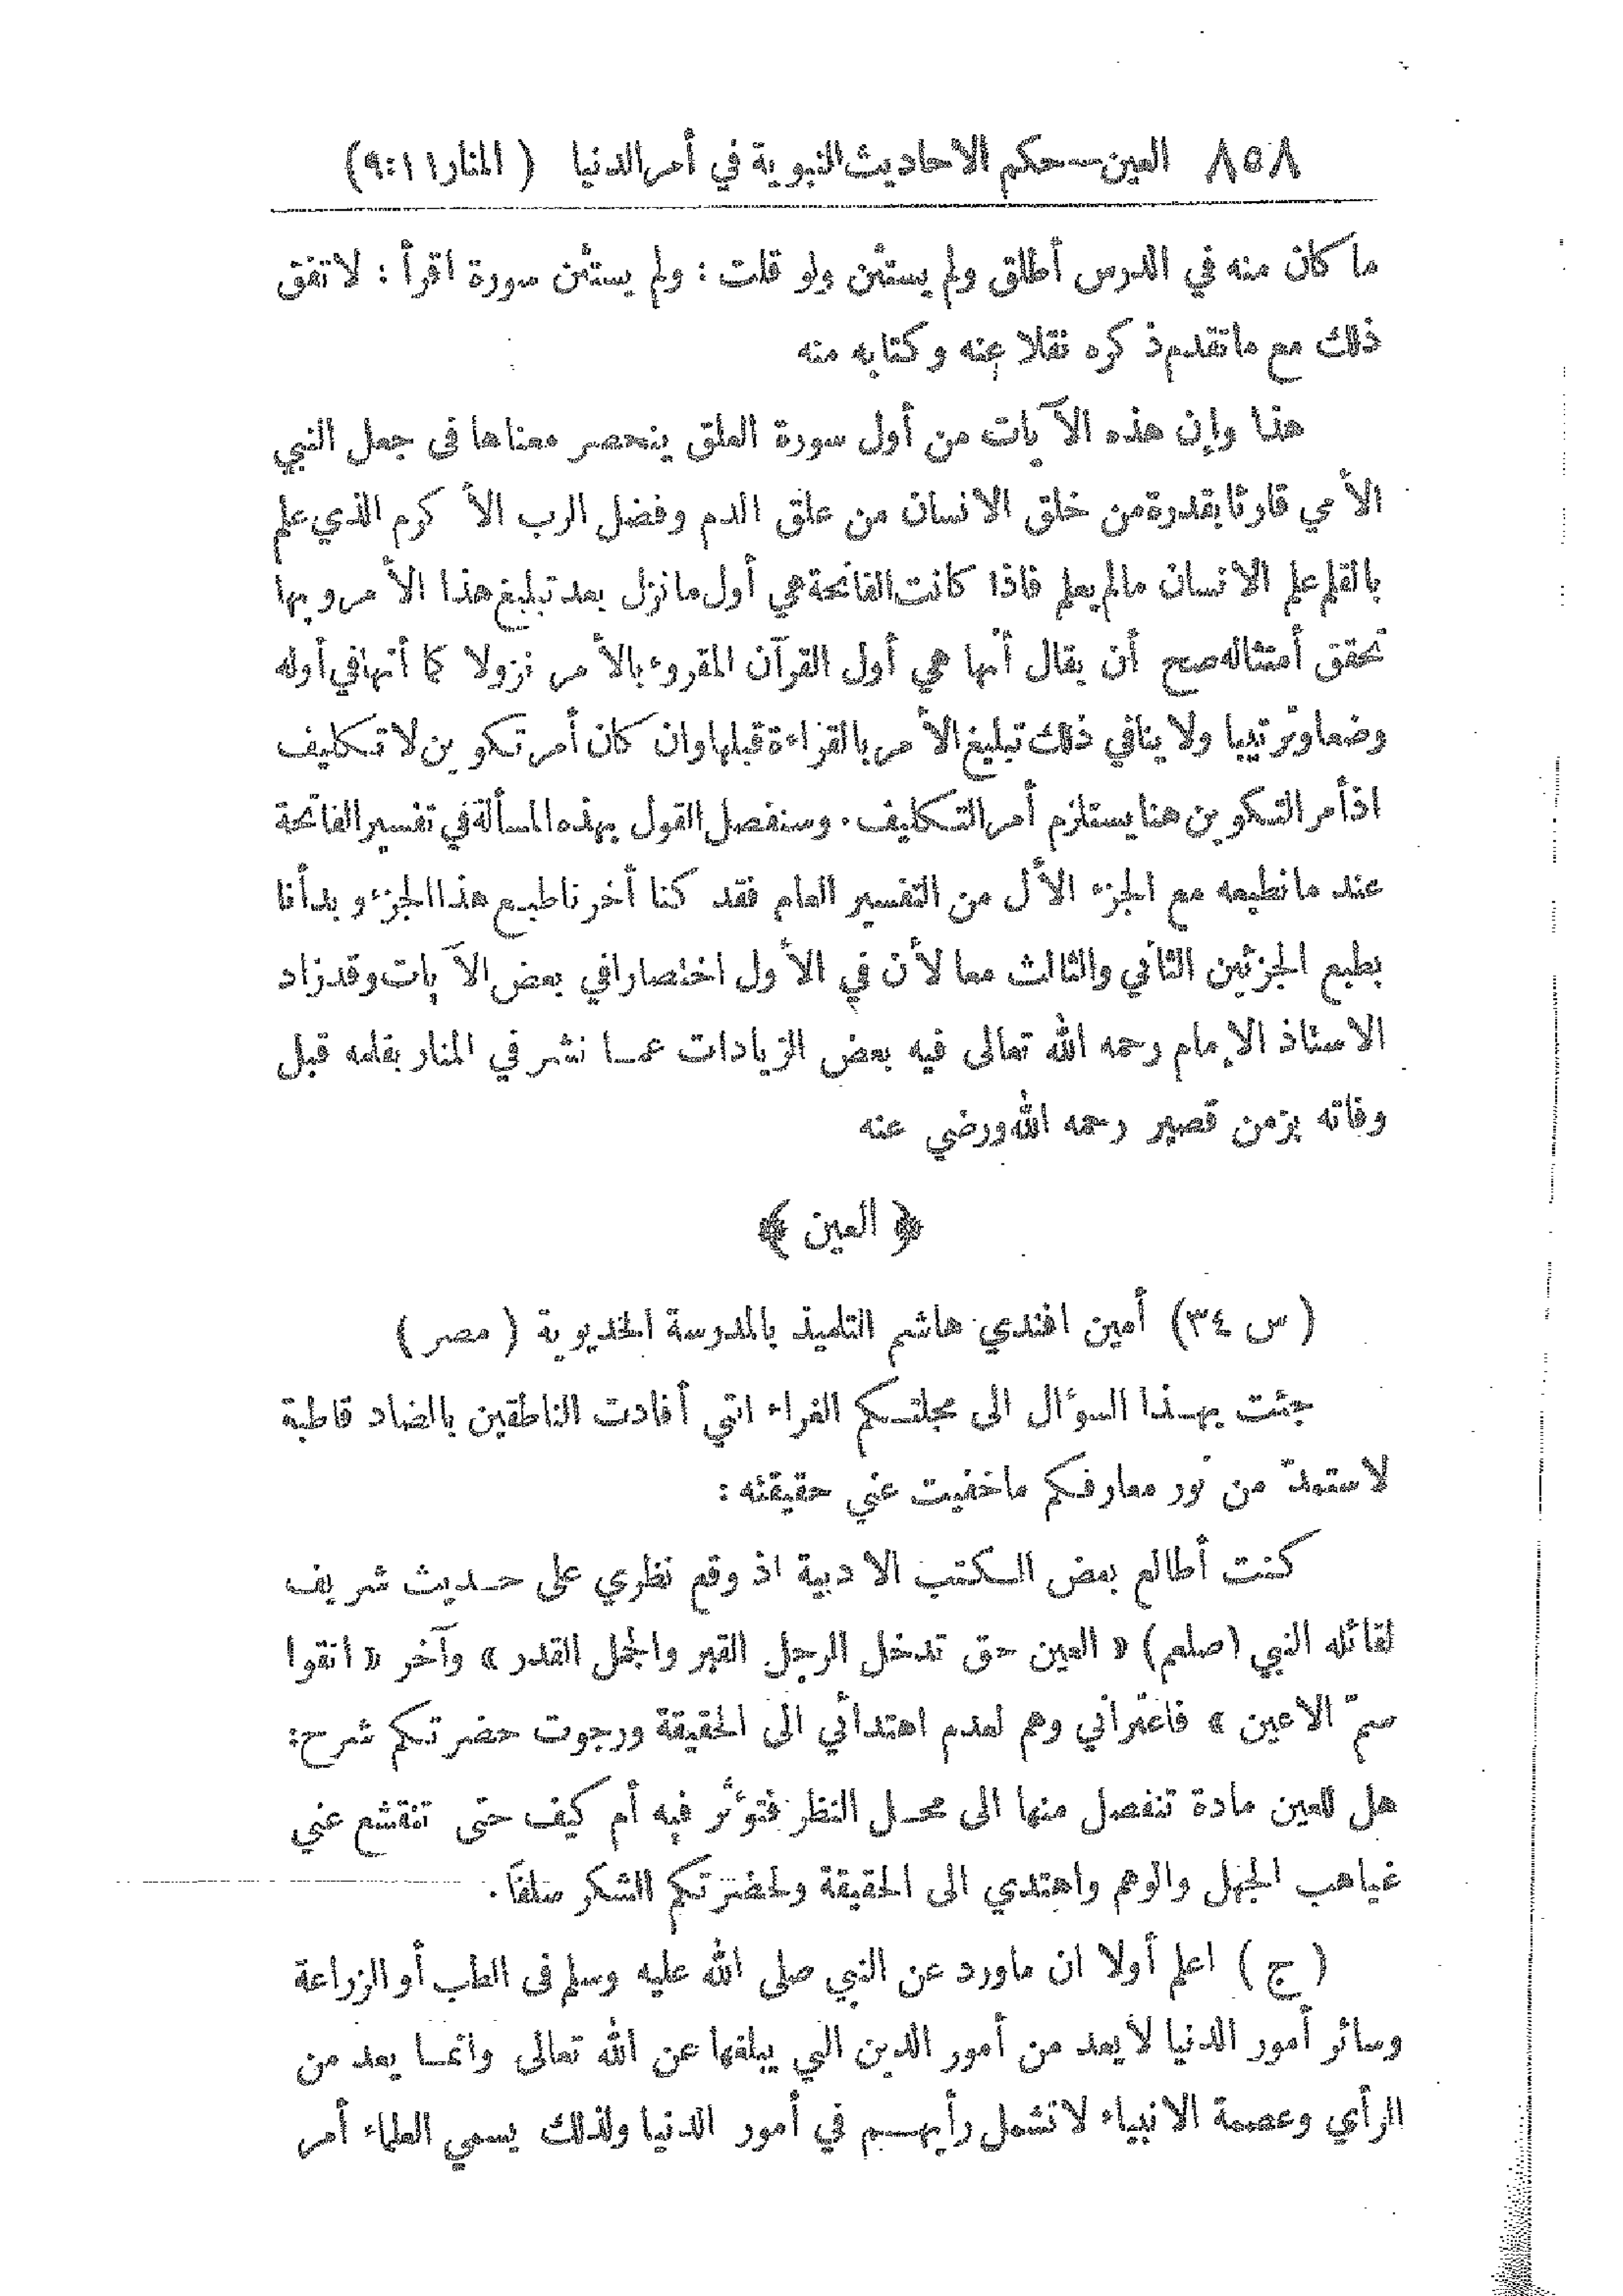 ٨٥٨ العين — حكم الاحاديث النبوية في أمر الدنيا ( المنار ١١ : ٩)
ما كان منه في الدرس أطلق ولم يستثن ولو قلت : ولم يستثن سورة اقرأ : لا تفق
ذلك مع ما تقدم ذكره نقلا عنه وكتابه منه
هذا وإن هذه الآيات من أول سورة العلق ينحصر معناها في جعل النبي
الأمي قارئا بقدرة من خلق الانسان من علق الدم وفضل الرب الأكرم الذي علم
بالقلم علم الانسان مالم يعلم فاذا كانت الفاتحة هي أول ما نزل بعد تبليغ هذا الأمر وبها
تحقق أمتثاله صح أن يقال أنها هي أول القرآن المقروء بالأمر نزولا كما أنها في أوله
وضعا وترتيبا ولا ينافي ذلك تبليغ الأمر بالقراءة قبلها وان كان أمر تكوين لا تكليف
اذ أمر التكوين هنا يستلزم أمر التكليف . وسنفصل القول بهذه المسألة في تفسير الفاتحة
عند ما نطبعه مع الجزء الأل من التفسير العام فقد كنا أخرنا طبع هذا الجزء وبدأنا
بطبع الجزئين الثاني والثالث معا لأن في الأول اختصارا في بعض الآيات وقد زاد
الاستاذ الإمام رحمه الله تعالى فيه بعض الزيادات عما نشر في المنار بقلمه قبل
وفاته بزمن قصير رحمه الله ورضي عنه
﴿ العين ﴾
( س ٣٤) أمين افندي هاشم التلميذ بالمدرسة الخديوية ( مصر )
جئت بهذا السؤال الى مجلتكم الغراء اتي أفادت الناطقين بالضاد قاطبة
لاستمدّ من نور معارفكم ماخفيت عني حقيقته :
كنت أطالع بعض الكتب الادبية اذ وقع نظري على حديث شريف
لقائله النبي (صلعم) « العين حق تدخل الرجل القبر والجمل القدر » وآخر « اتقوا
سمّ الاعين » فاعتراني وهم لعدم اهتدائي الى الحقيقة ورجوت حضرتكم شرح:
هل للعين مادة تنفصل منها الى محل النظر فتؤثر فيه أم كيف حتى تنقشع عني
غياهب الجهل والوهم واهتدي الى الحقيقة ولحضرتكم الشكر سلفاً .
( ج ) اعلم أولا ان ماورد عن النبي صلى الله عليه وسلم في الطب أو الزراعة
وسائر أمور الدنيا لا يعد من أمور الدين التي يبلغها عن الله تعالى وانما يعد من
الرأي وعصمة الانبياء لا تشمل رأيهم في أمور الدنيا ولذلك يسمي العلماء أمر